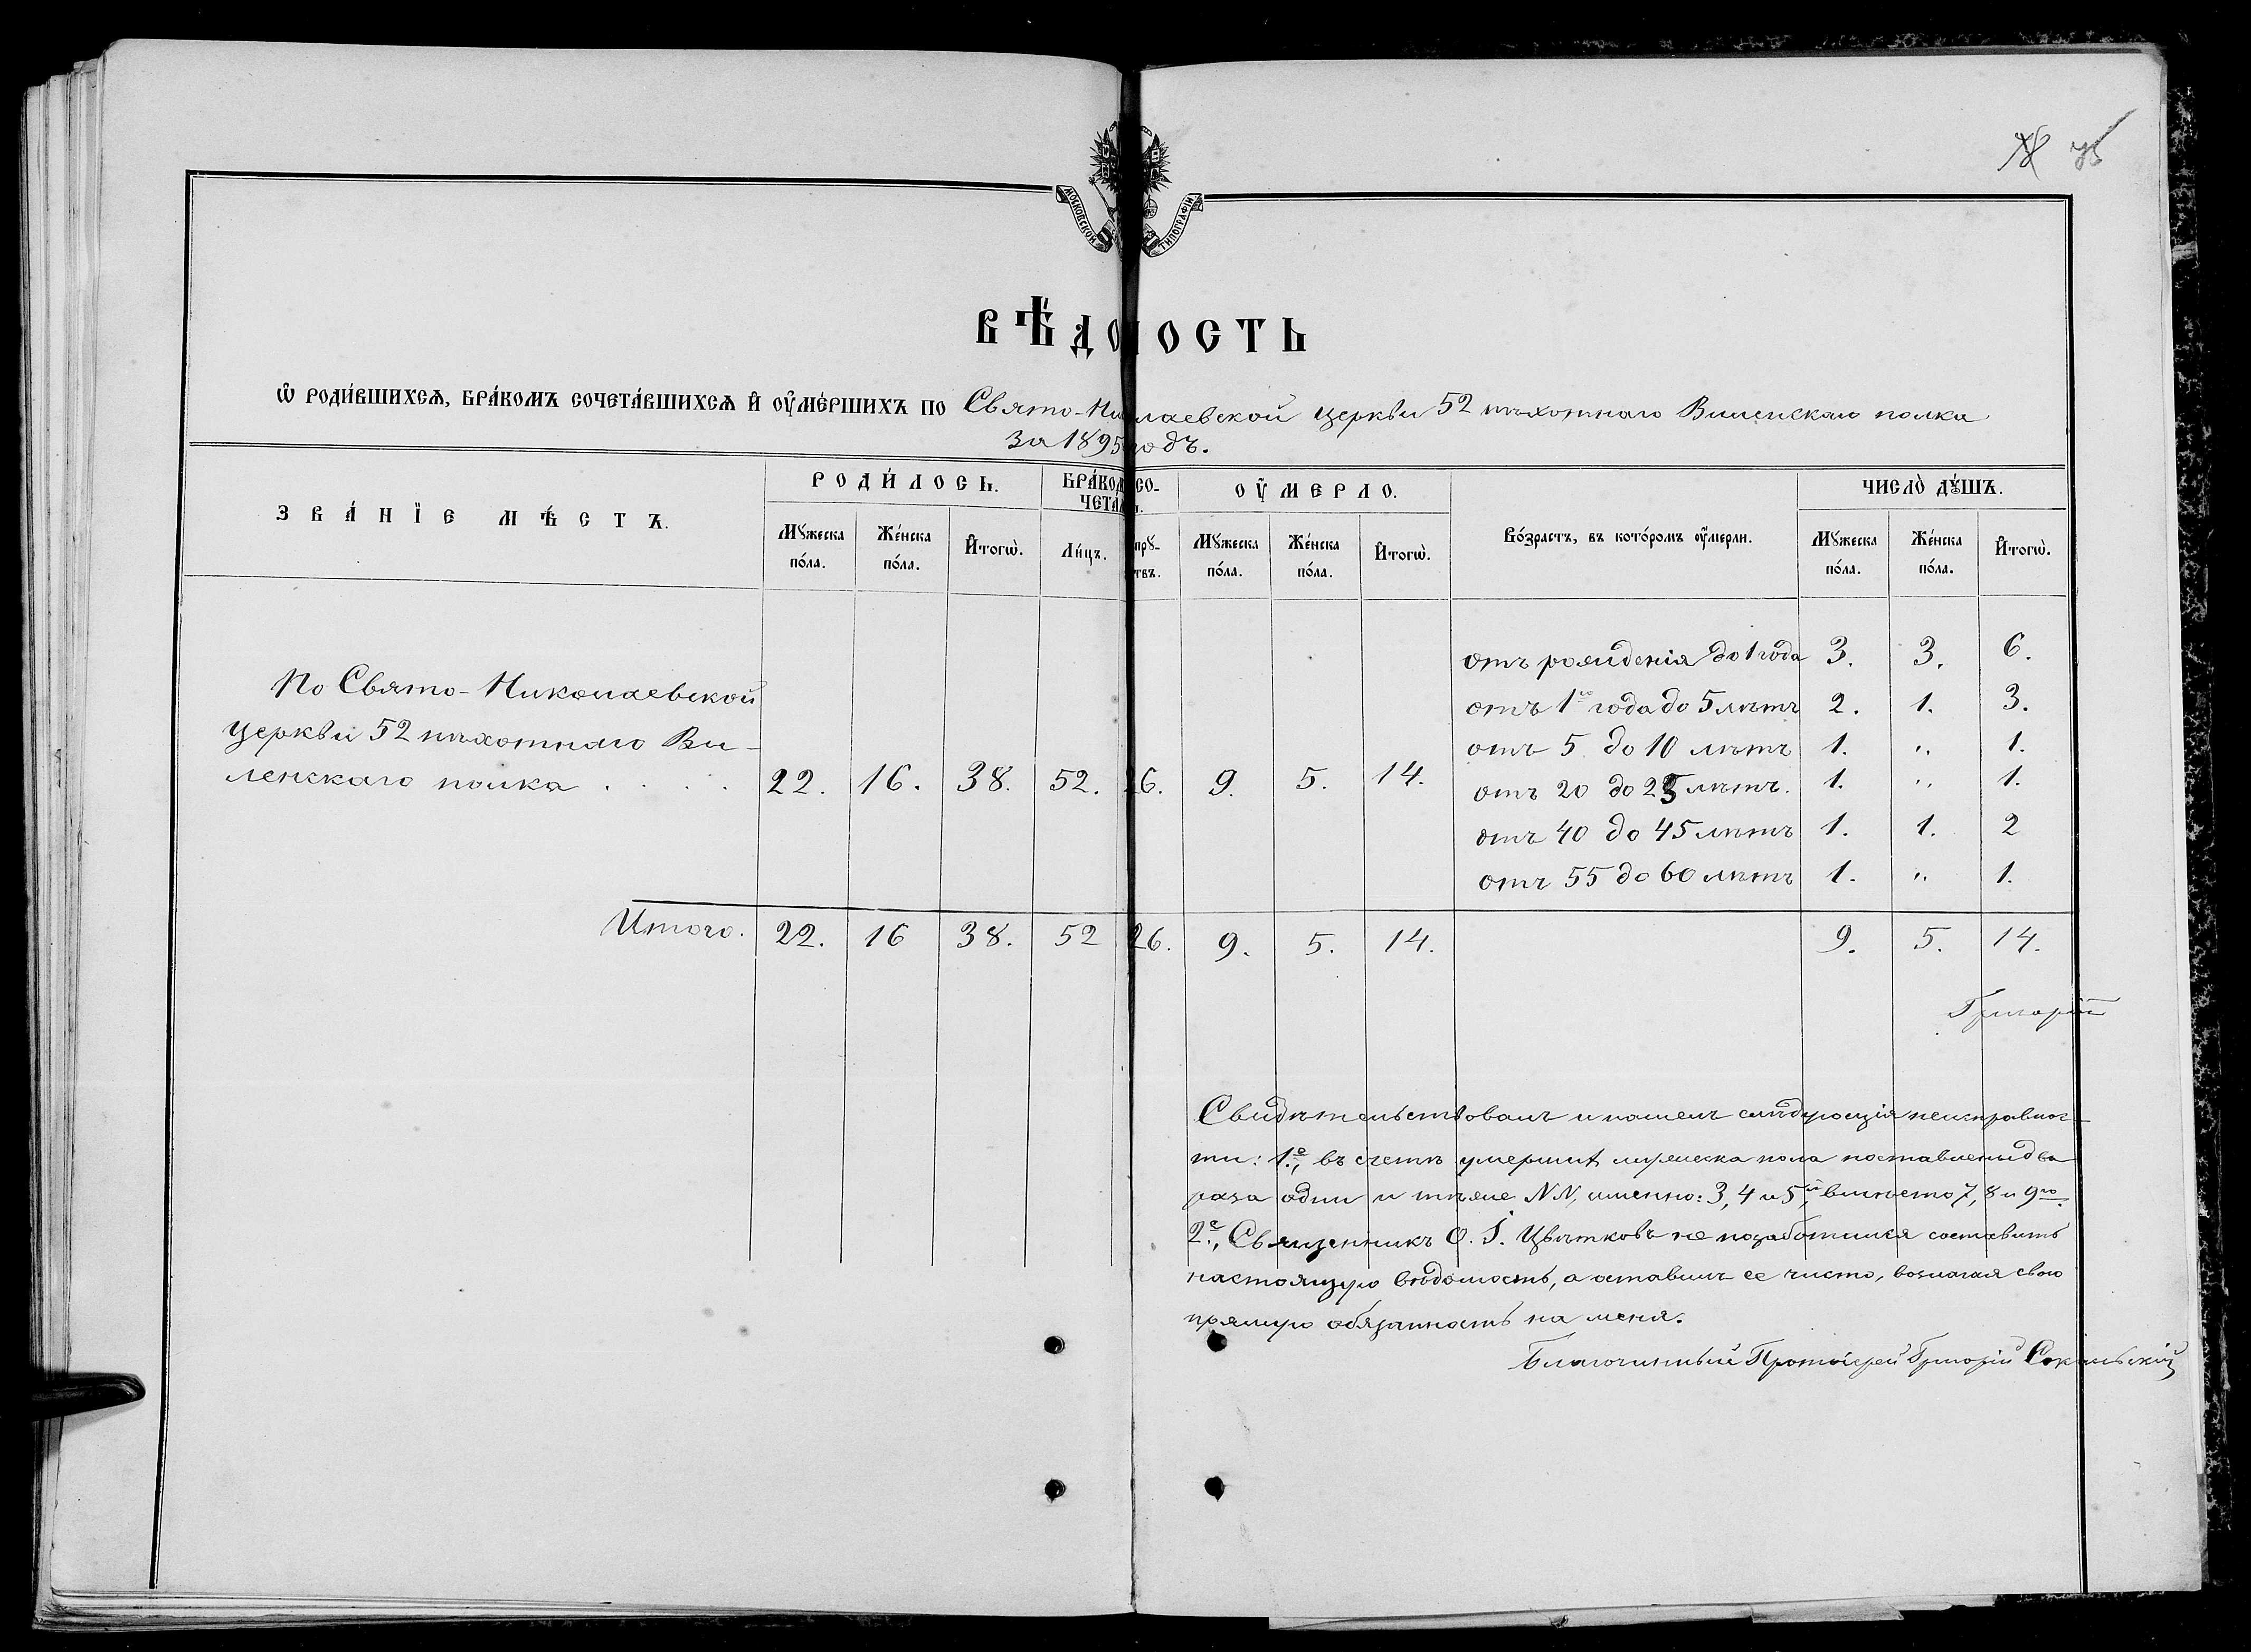 75
МОСКОВСКОЙ ТИПОГРАФІИ
ВѢДОМОСТЬ
Ѡ РОДИ́ВШИХСѦ, БРА́КОМЪ СОЧЕТА́ВШИХСѦ И҆ ОУ҆МЕ́РШИХЪ ПО Свято-Николаевской церкви 52 пѣхотнаго Виленскаго полка
за 1895 годъ.
ЗВА́НЇЕ МѢ́СТЪ.
РОДИ́ЛОСЬ.
БРА́КОМЪ СО-
ЧЕТАЛОСЬ.
ОУ҆МЕРЛО.
Во́зрастъ, въ кото́ромъ оу҆мерли.
ЧИСЛО̀ ДꙊ́ШЪ.
Мꙋжеска по́ла.
Же́нска по́ла.
И҆тогѡ̀.
Ли́цъ.
прꙋ-
твъ.
Мꙋжеска по́ла.
Же́нска по́ла.
И҆тогѡ̀.
Мꙋжеска по́ла.
Же́нска по́ла.
И҆тогѡ̀.
По Свято-Николаевской
церкви 52 пѣхотнаго Ви-
ленскаго полка . . . . 22. 16. 38. 52. 26. 9. 5. 14.
отъ рожденія до 1 года 3. 3. 6.
отъ 1го года до 5 лѣтъ 2. 1. 3.
отъ 5 до 10 лѣтъ 1. „ 1.
отъ 20 до 25 лѣтъ. 1. „ 1.
отъ 40 до 45 лѣтъ 1. 1. 2
отъ 55 до 60 лѣтъ 1. „ 1.
Итого. 22. 16 38. 52 26. 9. 5. 14. 9. 5. 14.
Григорій
Свидѣтельствовалъ и нашелъ слѣдующія неисправнос-
ти: 1.е, въ счетѣ умершихъ мужеска пола поставлены два
раза одни и тѣ же NN, именно: 3, 4 и 5й, вмѣсто 7, 8 и 9го.
2.е, Священникъ О. І. Цвѣтковъ не позаботился составить
настоящую вѣдомость, а оставилъ ее чисто, возлагая свою
прямую обязанность на меня.
Благочинный Протоіерей Григорій Сокольскій